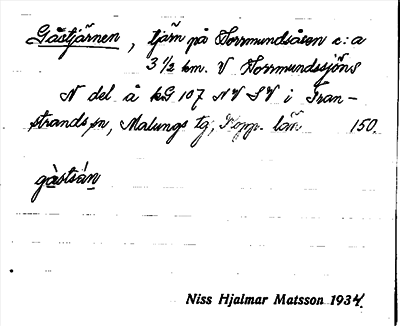 Gåstjärnen, tjärn på Horrmundsåsen c:a
3 1/2 km. V Horrmundssjöns
N del å kG 107 NV SV i Tran-
strands sn, Malungs tg, Kopp. län 150.
gåstsán
Niss Hjalmar Matsson 1934.